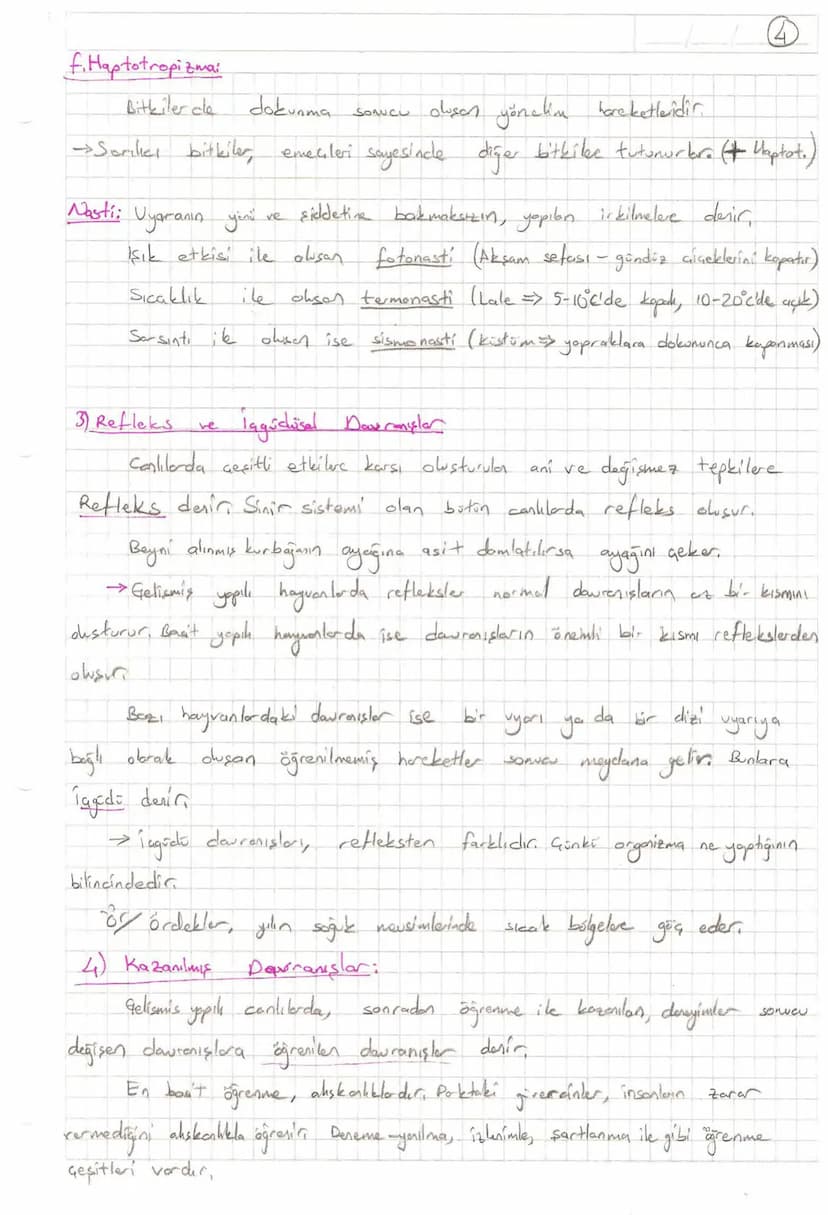 4
f. Haptotropizma:
Bitkilerde dokunma sonucu oluşan yönelim hareketleridir.
→ Sarılıcı bitkiler, emeçleri sayesinde diğer bitkilere tutunurlar. (+ Haptot.)
Nasti: Uyaranın yönü ve şiddetine bakmaksızın, yapılan irkilmelere denir.
Işık etkisi ile oluşan fotonasti (Akşam sefası - gündüz çiçeklerini kapatır)
Sıcaklık ile oluşan termonasti (Lale => 5-10°C'de kapalı, 10-20°C'de açık)
Sarsıntı ile oluşan ise sismonasti (küstüm => yapraklara dokununca kapanması)
3) Refleks ve İçgüdüsel Davranışlar
Canlılarda çeşitli etkilere karşı oluşturulan ani ve değişmez tepkilere
Refleks denir. Sinir sistemi olan bütün canlılarda refleks oluşur.
Beyni alınmış kurbağanın ayağına asit damlatılırsa ayağını çeker.
→ Gelişmiş yapılı hayvanlarda refleksler normal davranışların az bir kısmını
oluşturur. Basit yapılı hayvanlarda ise davranışların önemli bir kısmı reflekslerden
oluşur.
Bazı hayvanlardaki davranışlar ise bir uyarı ya da bir dizi uyarıya
bağlı olarak oluşan öğrenilmemiş hareketler sonucu meydana gelir. Bunlara
İçgüdü denir.
→ İçgüdü davranışları, refleksten farklıdır. Çünkü organizma ne yaptığının
bilincindedir.
Ör/ Ördekler, yılın soğuk mevsimlerinde sıcak bölgelere göç eder.
4) Kazanılmış Davranışlar:
Gelişmiş yapılı canlılarda, sonradan öğrenme ile kazanılan, deneyimler sonucu
değişen davranışlara öğrenilen davranışlar denir.
En basit öğrenme, alışkanlıklardır. Parktaki güvercinler, insanların zarar
vermediğini alışkanlıkla öğrenir. Deneme-yanılma, izlenimle, şartlanma ile gibi öğrenme
çeşitleri vardır.